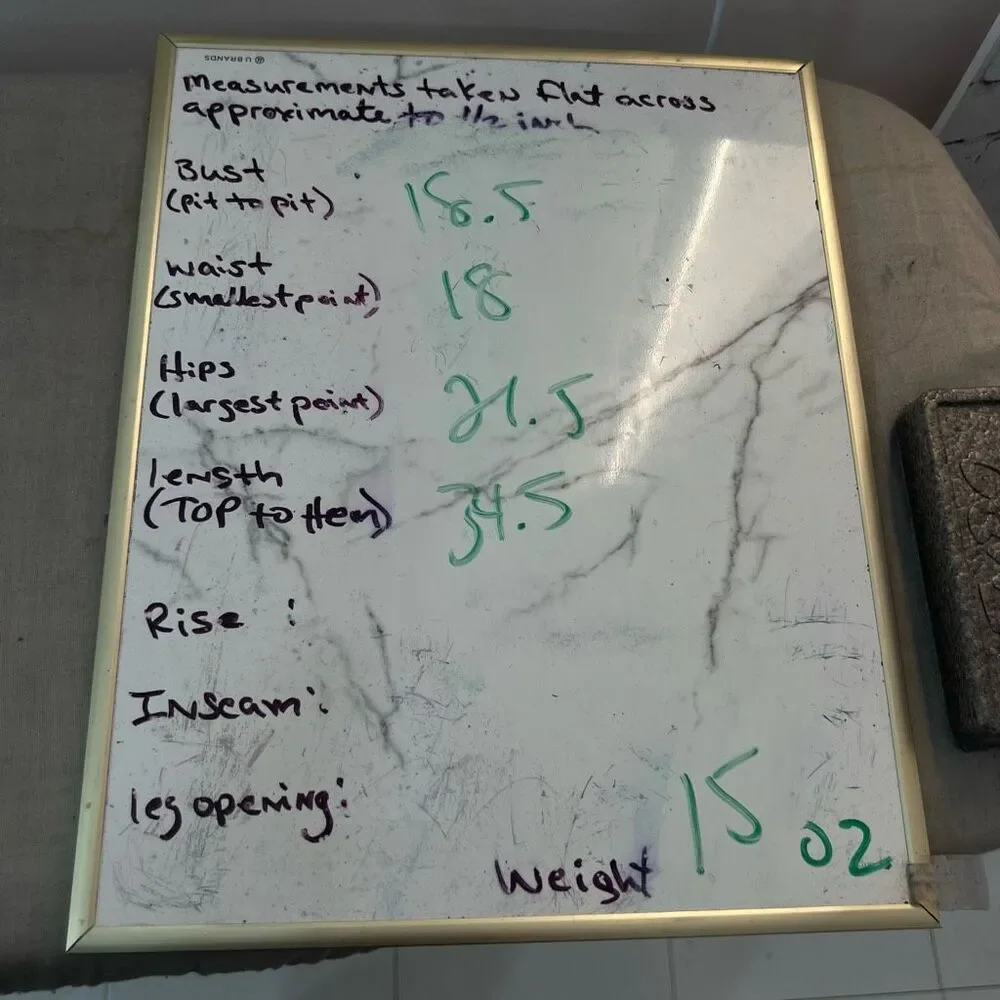 U BRANDS
Measurements taken flat across
approximate to 1/2 inch
Bust
(pit to pit) 18.5
waist
(smallest point) 18
Hips
(largest point) 21.5
length
(TOP to Hem) 34.5
Rise :
Inseam:
leg opening:
15 oz
Weight